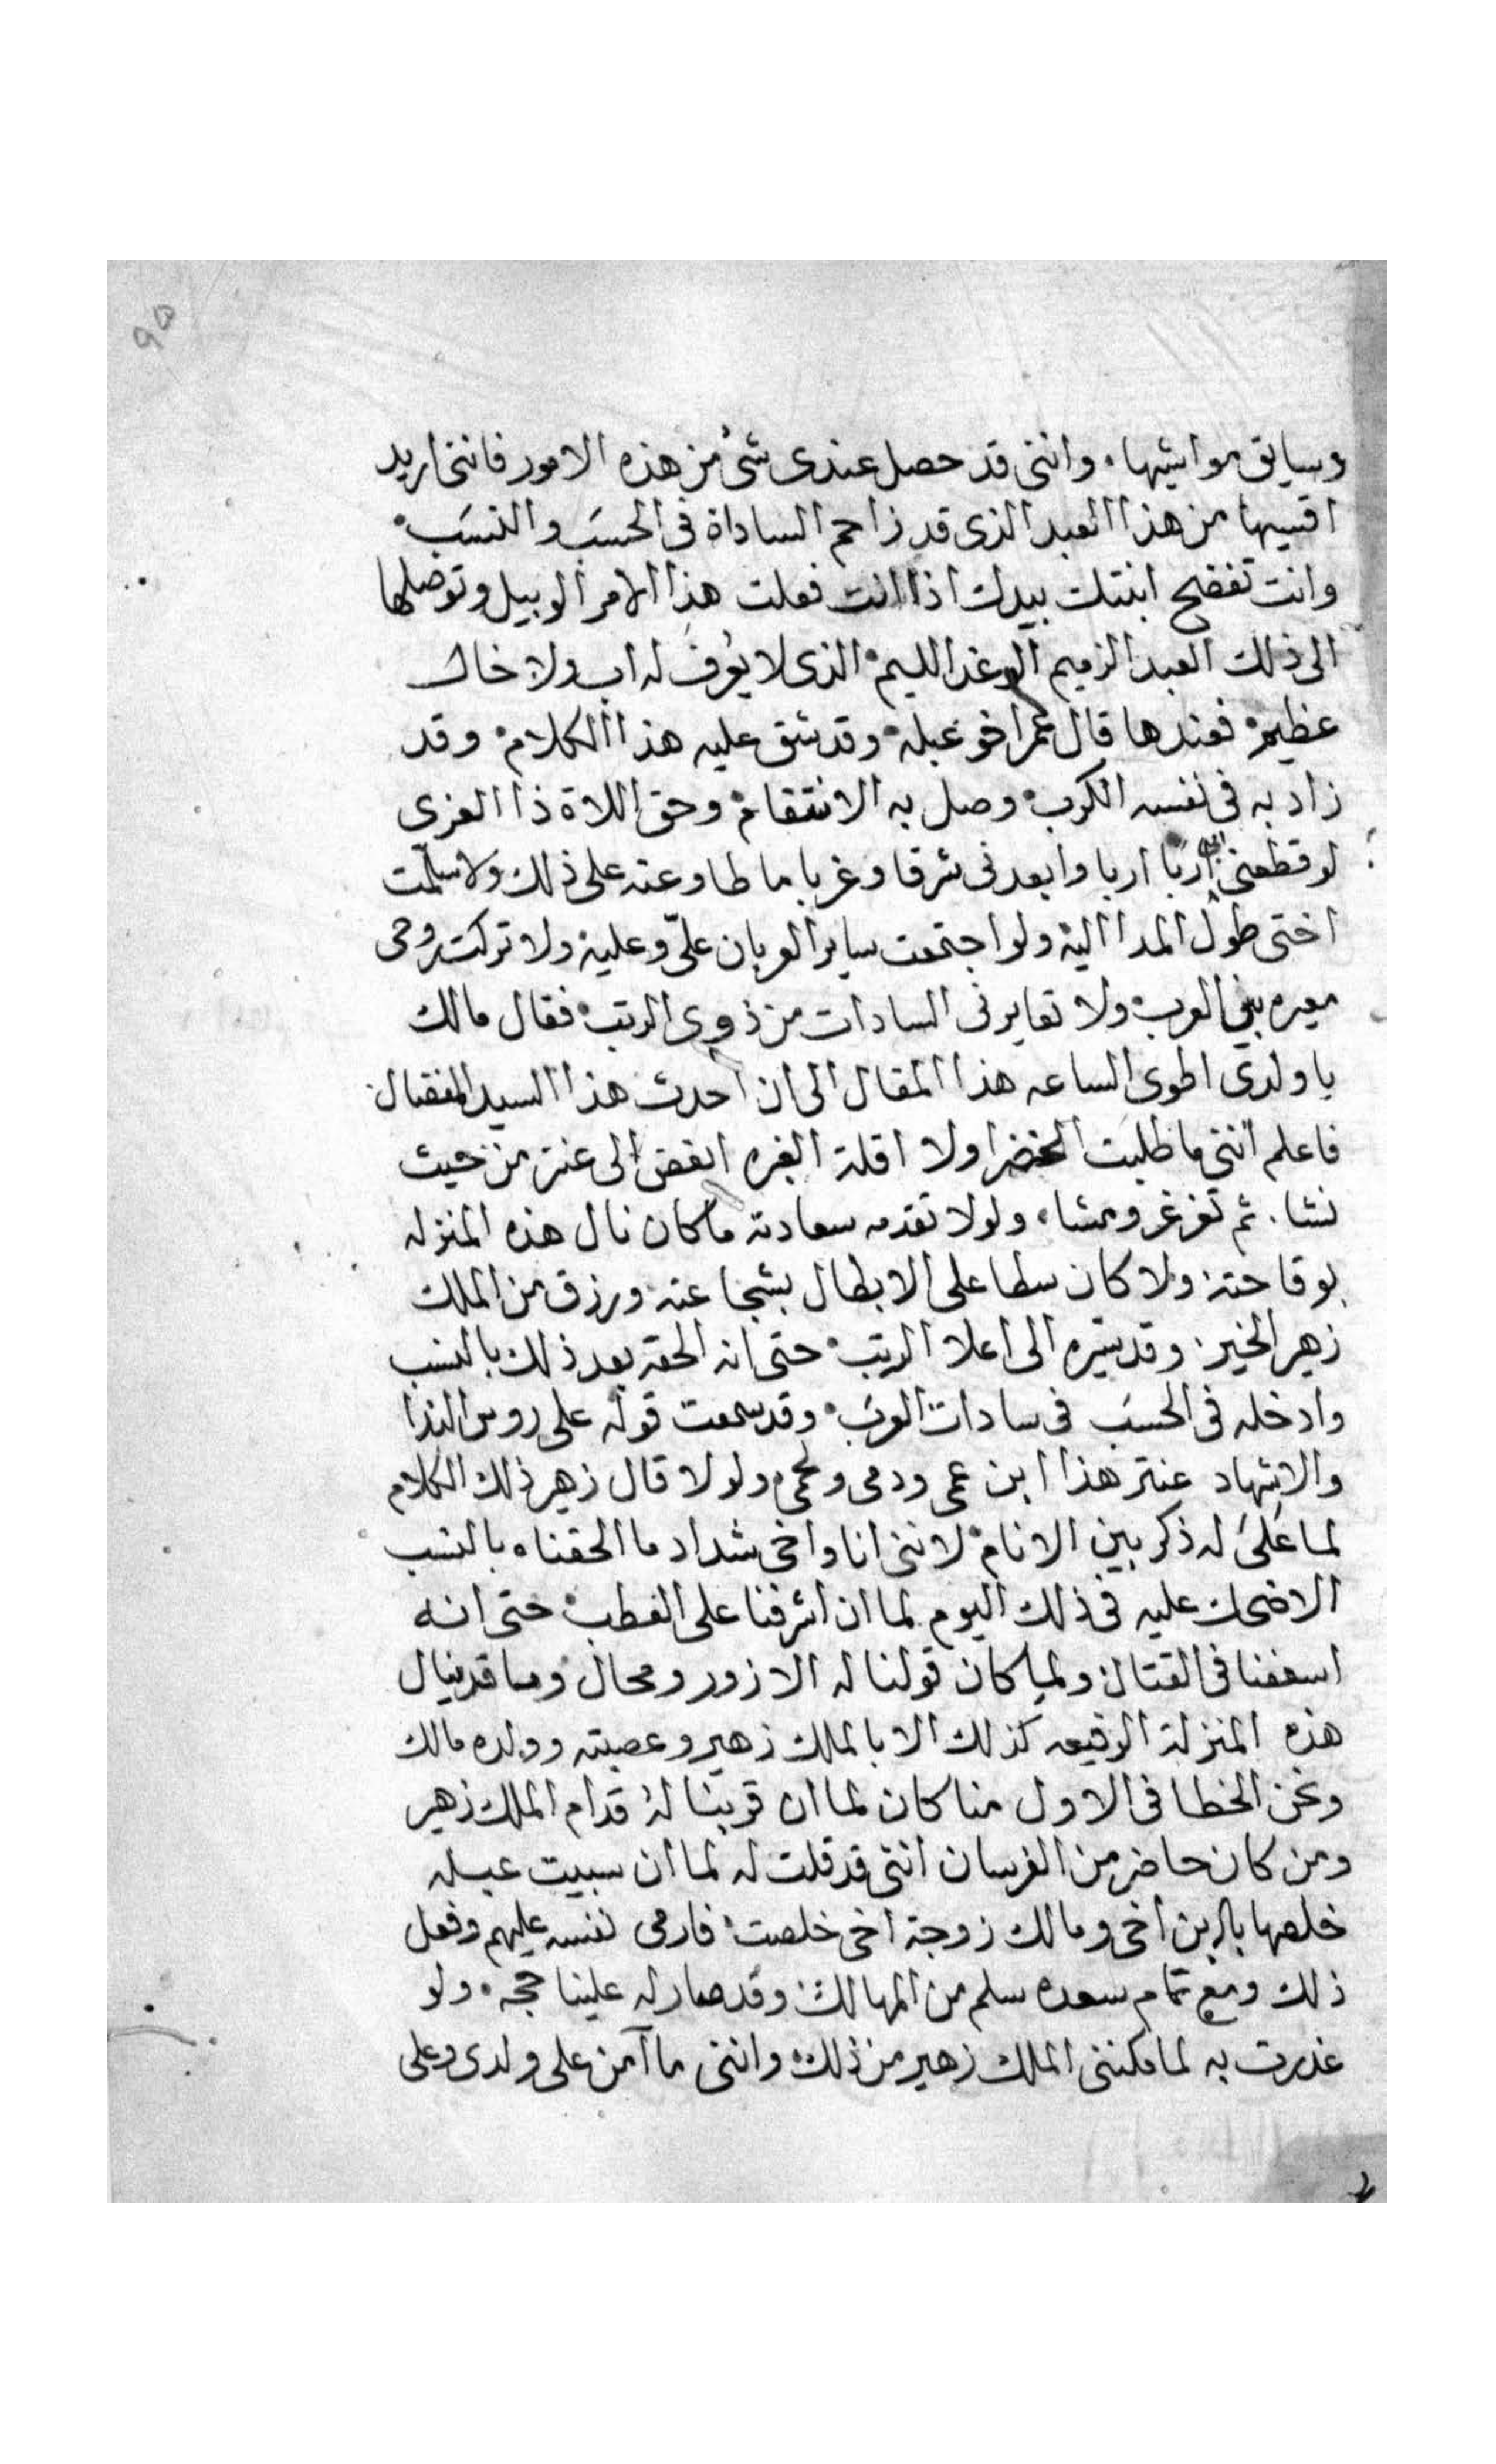 ٩٥
وسايق مواشيها، وانني قد حصل عندى شئ من هذه الامور فانني اريد
اقسيها من هذا العبد الذى قد زاحم الساداة في الحسب والنسب
وانت تفضح ابنتك بيدك اذا انت فعلت هذا الامر الوبيل وتوصلها
الى ذلك العبد الزميم الوغد الليم الذى لا يعرف له اب ولا خال
عظيم فعندها قال عمر اخو عبله وقد شق عليه هذا الكلام وقد
زاد به في نفسه الكرب وصل به الانتقام وحق اللاة ذا العزى
لو قطعني ابى اربا اربا وابعدنى شرقا وغربا ما طاوعته على ذلك ولا سلمت
اختى طول المدا اليه ولو اجتمعت ساير العربان علىّ وعليه ولا تركت روحى
معيره بين العرب ولا تعايرنى السادات من ذوى الرتب فقال مالك
يا ولدى اطوى الساعه هذا المقال الى ان احدث هذا السيد المفضال
فاعلم انني ما طلبت الخضرا ولا اقلة الغبره ابغض الى عنتر من حيث
نشا. ثم تغرغر ومشا، ولولا تقدمه سعادته ما كان نال هذه المنزله
بوقاحته ولا كان سطا على الابطال بشجاعته ورزق من الملك
زهير الخير وقد سيره الى اعلا الرتب حتى انه الحقه بعد ذلك بالنسب
وادخله فى الحسب فى سادات العرب وقد سمعت قوله على روس الندا
والاشهاد عنتر هذا ابن عمى ودمى ولحمى ولولا قال زهير ذلك الكلام
لما على له ذكر بين الانام لانني انا واخى شداد ما الحقناه بالنسب
الا ضحك عليه فى ذلك اليوم لما ان اشرفنا على العطب حتى انه
اسعفنا فى القتال ولما كان قولنا له الا زور ومحال وما قد ينال
هذه المنزلة الرفيعه كذلك الا بالملك زهير وعصبته وولده مالك
ونحن الخطا فى الاول منا كان لما ان قربنا له قدام الملك زهير
ومن كان حاضر من الفرسان انني قد قلت له لما ان سبيت عبله
خلصها يا ابن اخى ومالك زوجة اخى خلصت فارمى نفسه عليهم وفعل
ذلك ومع تمام سعده سلم من المهالك وقد صار له علينا حجه، ولو
غدرت به لما مكننى الملك زهير من ذلك وانني ما آمن على ولدى وعلى